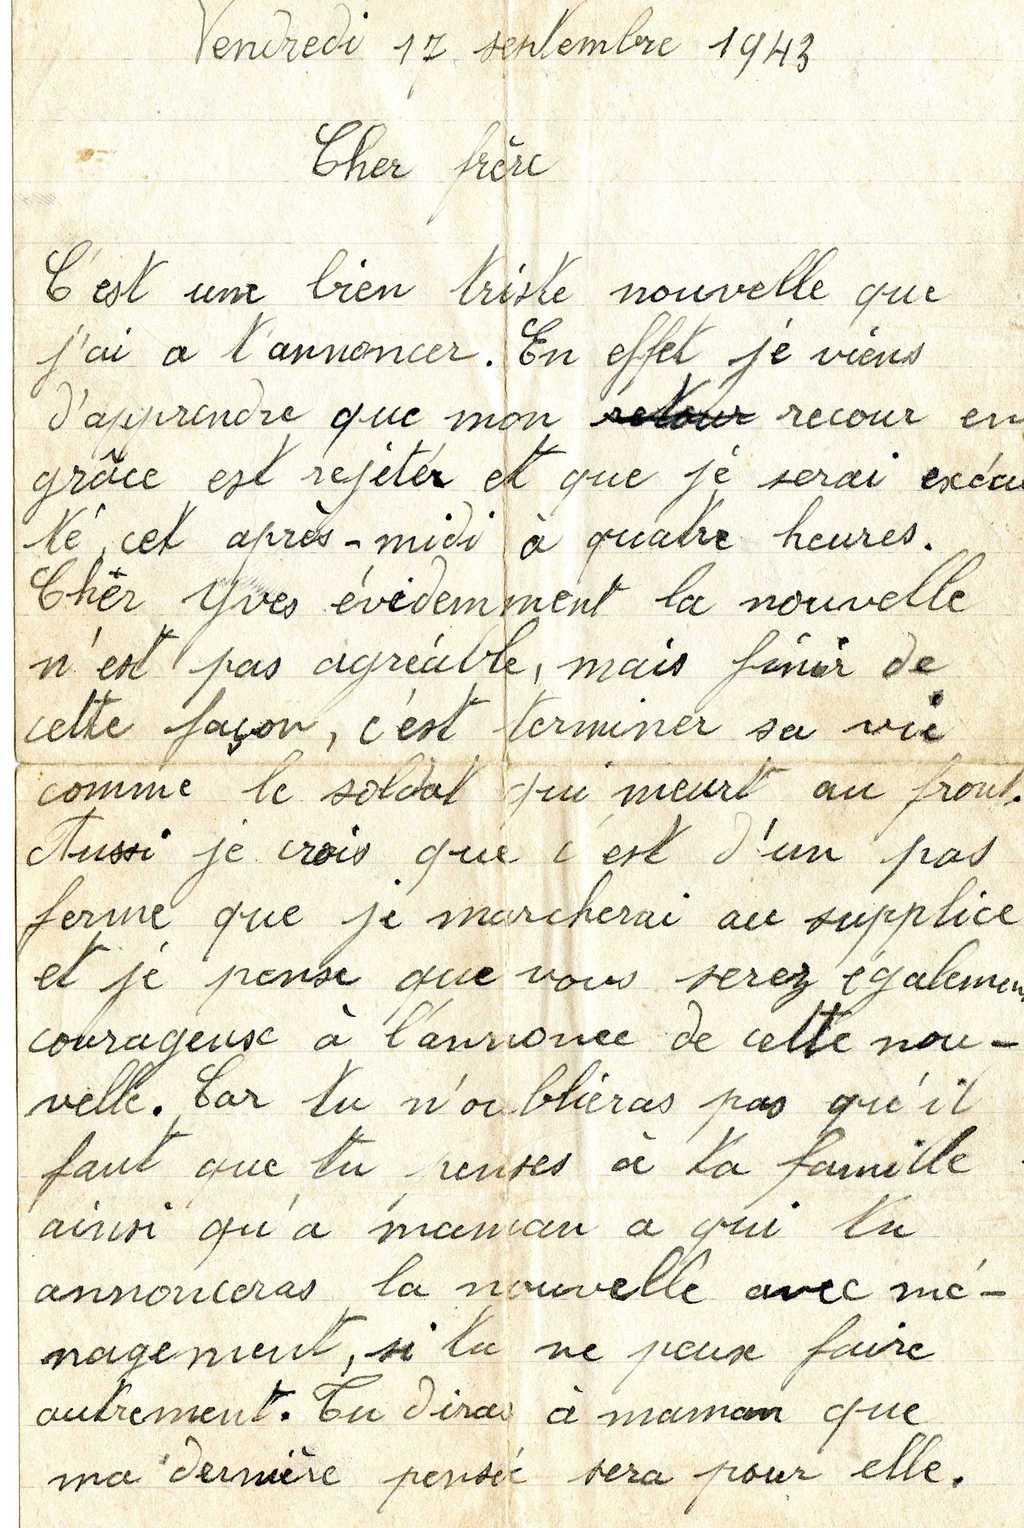 Vendredi 17 septembre 1943
Cher frère
C'est une bien triste nouvelle que
j'ai a t'annoncer. En effet je viens
d'apprendre que mon retour recour en
grâce est rejetér et que je serai exécu
té cet après-midi à quatre heures.
Chèr Yves évidemment la nouvelle
n'est pas agréable, mais finir de
cette façon, c'est terminer sa vie
comme le soldat qui meurt au front.
Aussi je crois que c'est d'un pas
ferme que je marcherai au supplice
et je pense que vous serez égalemen
courageux à l'annonce de cette nou-
velle. Car tu n'oublieras pas qu'il
faut que tu penses à ta famille
ainsi qu'a maman a qui tu
annonceras la nouvelle avec mé-
nagement, si tu ne peux faire
autrement. Tu diras à maman que
ma dernière pensée sera pour elle.